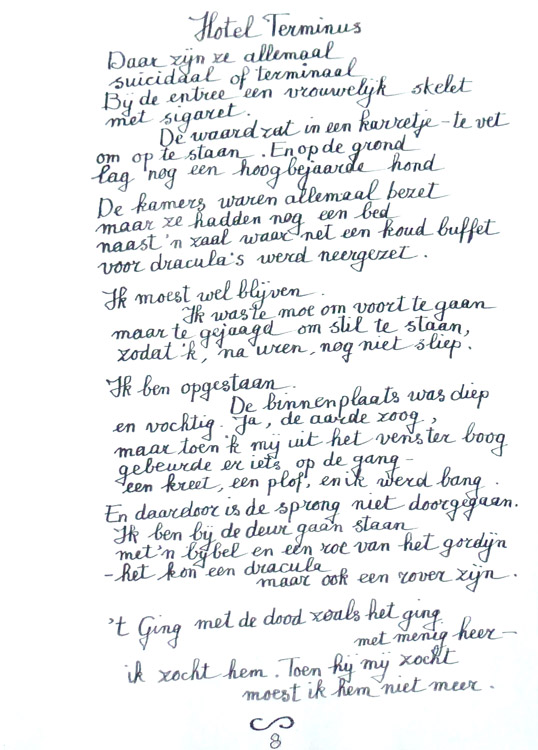 Hotel Terminus
Daar zijn ze allemaal
suicidaal of terminaal
Bij de entree een vrouwelijk skelet
met sigaret.
De waard zat in een karretje - te vet
om op te staan. En op de grond
lag nog een hoogbejaarde hond
De kamers waren allemaal bezet
maar ze hadden nog een bed
naast 'n zaal waar net een koud buffet
voor dracula's werd neergezet.
Ik moest wel blijven.
Ik was te moe om voort te gaan
maar te gejaagd om stil te staan,
zodat 'k, na uren, nog niet sliep.
Ik ben opgestaan.
De binnenplaats was diep
en vochtig. Ja, de aarde zoog,
maar toen 'k mij uit het venster boog
gebeurde er iets op de gang -
een kreet, een plof, en ik werd bang.
En daardoor is de sprong niet doorgegaan.
Ik ben bij de deur gaan staan
met 'n bijbel en een roe van het gordijn
- het kon een dracula
maar ook een rover zijn.
't Ging met de dood zoals het ging
met menig heer -
ik zocht hem. Toen hij mij zocht
moest ik hem niet meer.
8